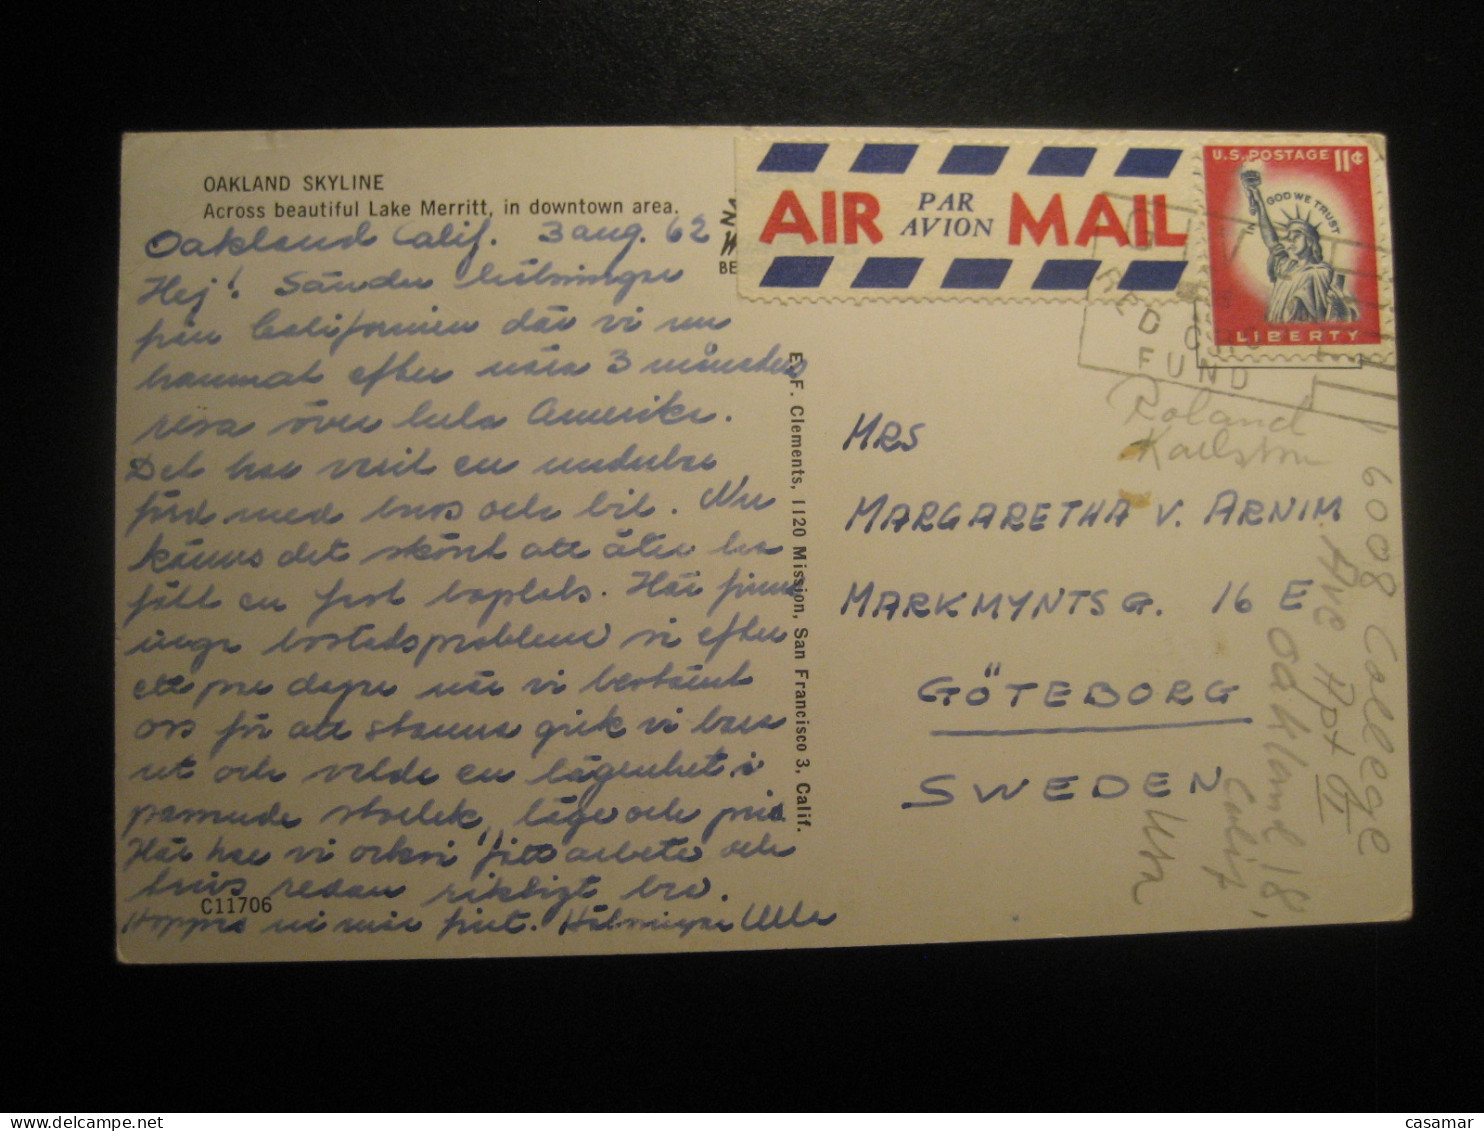 OAKLAND SKYLINE
Across beautiful Lake Merritt, in downtown area.
Oakland Calif. 3 aug. 62
Hej! Sänder hälsningar
från Californien där vi nu
hamnat efter nära 3 månaders
resa över hela Amerika.
Det har varit en underbar
färd med buss och bil. Nu
känns det skönt att åter ha
fått en fast boplats. Här finns
inga bostadsproblem vi efter
ett par dagar när vi bestämt
oss för att stanna gick vi bara
ut och valde en lägenhet i
passande storlek, läge och pris
Här har vi också fått arbete och
trivs redan riktigt bra.
C11706
Hoppas ni mår fint. Hälsningar Ulla
BE
E. F. Clements, 1120 Mission, San Francisco 3, Calif.
AIR PAR AVION MAIL
U.S. POSTAGE 11¢
IN GOD WE TRUST
LIBERTY
RED
FUND
Roland
Karlström
MRS
MARGARETHA V. ARNIM
MARKMYNTSG. 16 E
GÖTEBORG
SWEDEN
6008 College
Ave Apt
Oakland 18,
Calif
USA
www.delcampe.net
casamar